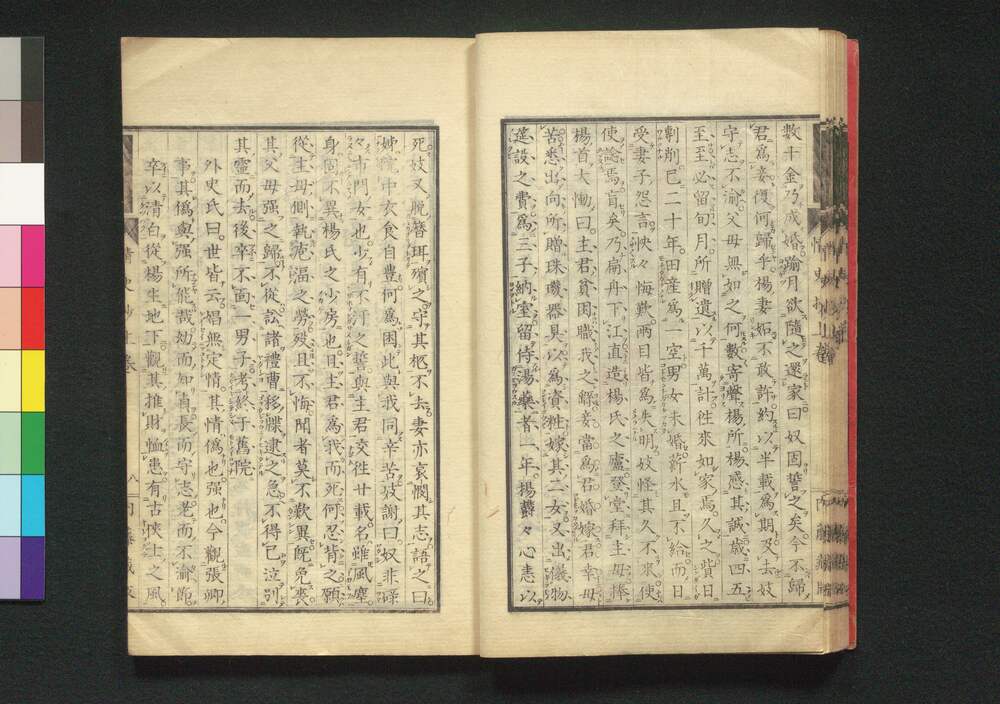 數十金乃成婚踰月欲隨之還家曰奴固誓之矣今不歸
君爲妾復何歸乎楊妻妬不敢許約以半載爲期及去妓
守志不渝父母無如之何數寄聲楊所楊感其誠歲四五
至至必留旬月所贈遺以千萬計往來如家焉久之貲日
剸削已二十年田產爲一空男女未婚薪水且不給而日
受妻子怨言怏々悔歎兩目皆爲失明妓怪其久不來使
使念焉盲矣乃扁舟下江直造楊氏之廬登堂拜主母捧
楊首大慟曰主君貧困職我之繇妾當爲君婚嫁君幸毋
苦悉出向所贈珠璣器具以爲資粧嫁其二女又出儀物
筵設之費爲三子納室留侍湯藥者一年楊欝々心恚以
死妓又脱簪珥殯之守其柩不去妻亦哀憫其志語之曰
姊院中衣食自豐何爲困此與我同辛苦妓謝曰奴非碌
々市門女也少有不汙之誓與主君交徃廿載名雖風塵
身固不異楊氏之少房也且主君爲我而死何忍背之願
從主母側執巵湢之勞歿且不悔聞者莫不歎異旣免喪
其父母强之歸不從訟諸禮曹移牒逮之急不得已泣別
其靈而去後卒不面一男子考終于舊院
外史氏曰世皆云娼無定情其情僞也强也今觀張卿
事其僞與强所能哉幼而知貞長而守志老而不渝節
卒以清白從楊生地下觀其推財恤患有古俠士之風
情史抄 上卷